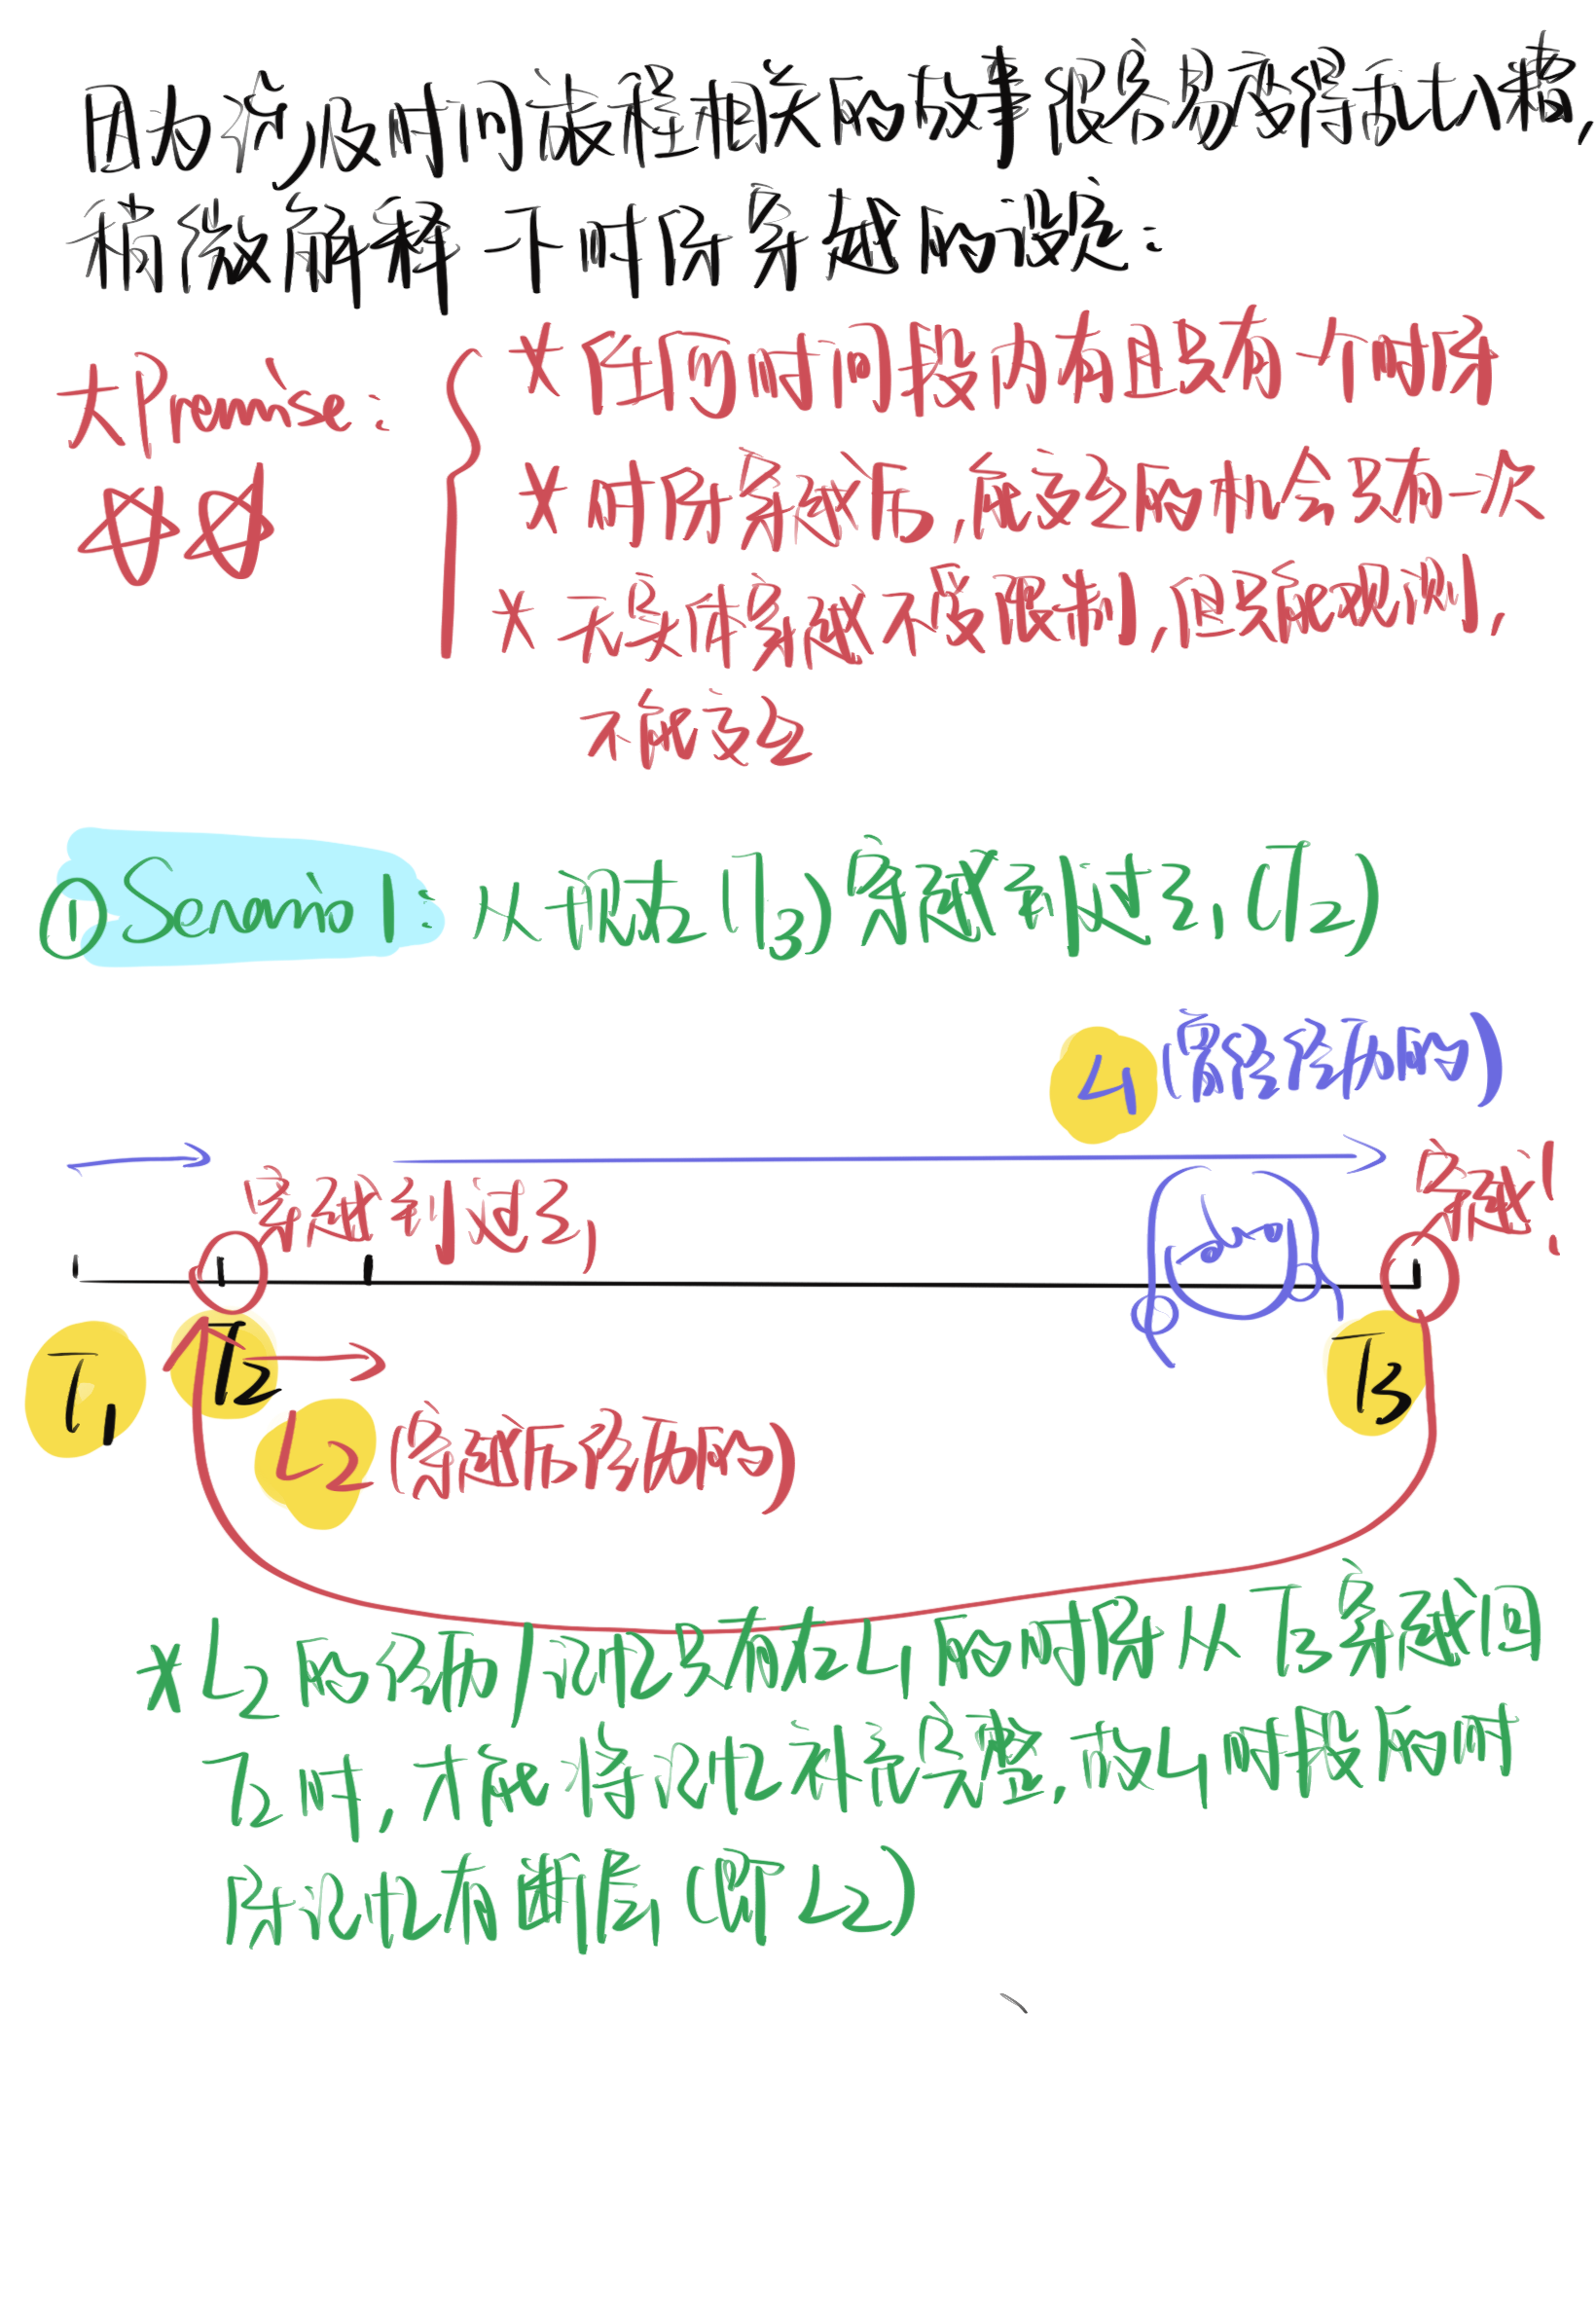 因为涉及时间旅程相关的故事很容易变得乱七八糟,
稍微解释一下时际穿越的设定:
大Premise:
* 任何时间段内有且只有一个时际
* 时际穿越后,能改变的机会只有一次
* 无实体穿越不受限制,但只能观测,
不能改变
① Senario 1: 从现在(T3)穿越到过去(T2)
L1 (曾经经历的)
穿越到过去
穿越!
T1 T2 T3
L2 (穿越后经历的)
* L2的经历/记忆只有在L1的时际从T3穿越回
T2时,才能将记忆补充完整,故L1时段的时
际记忆有断层(即L2)